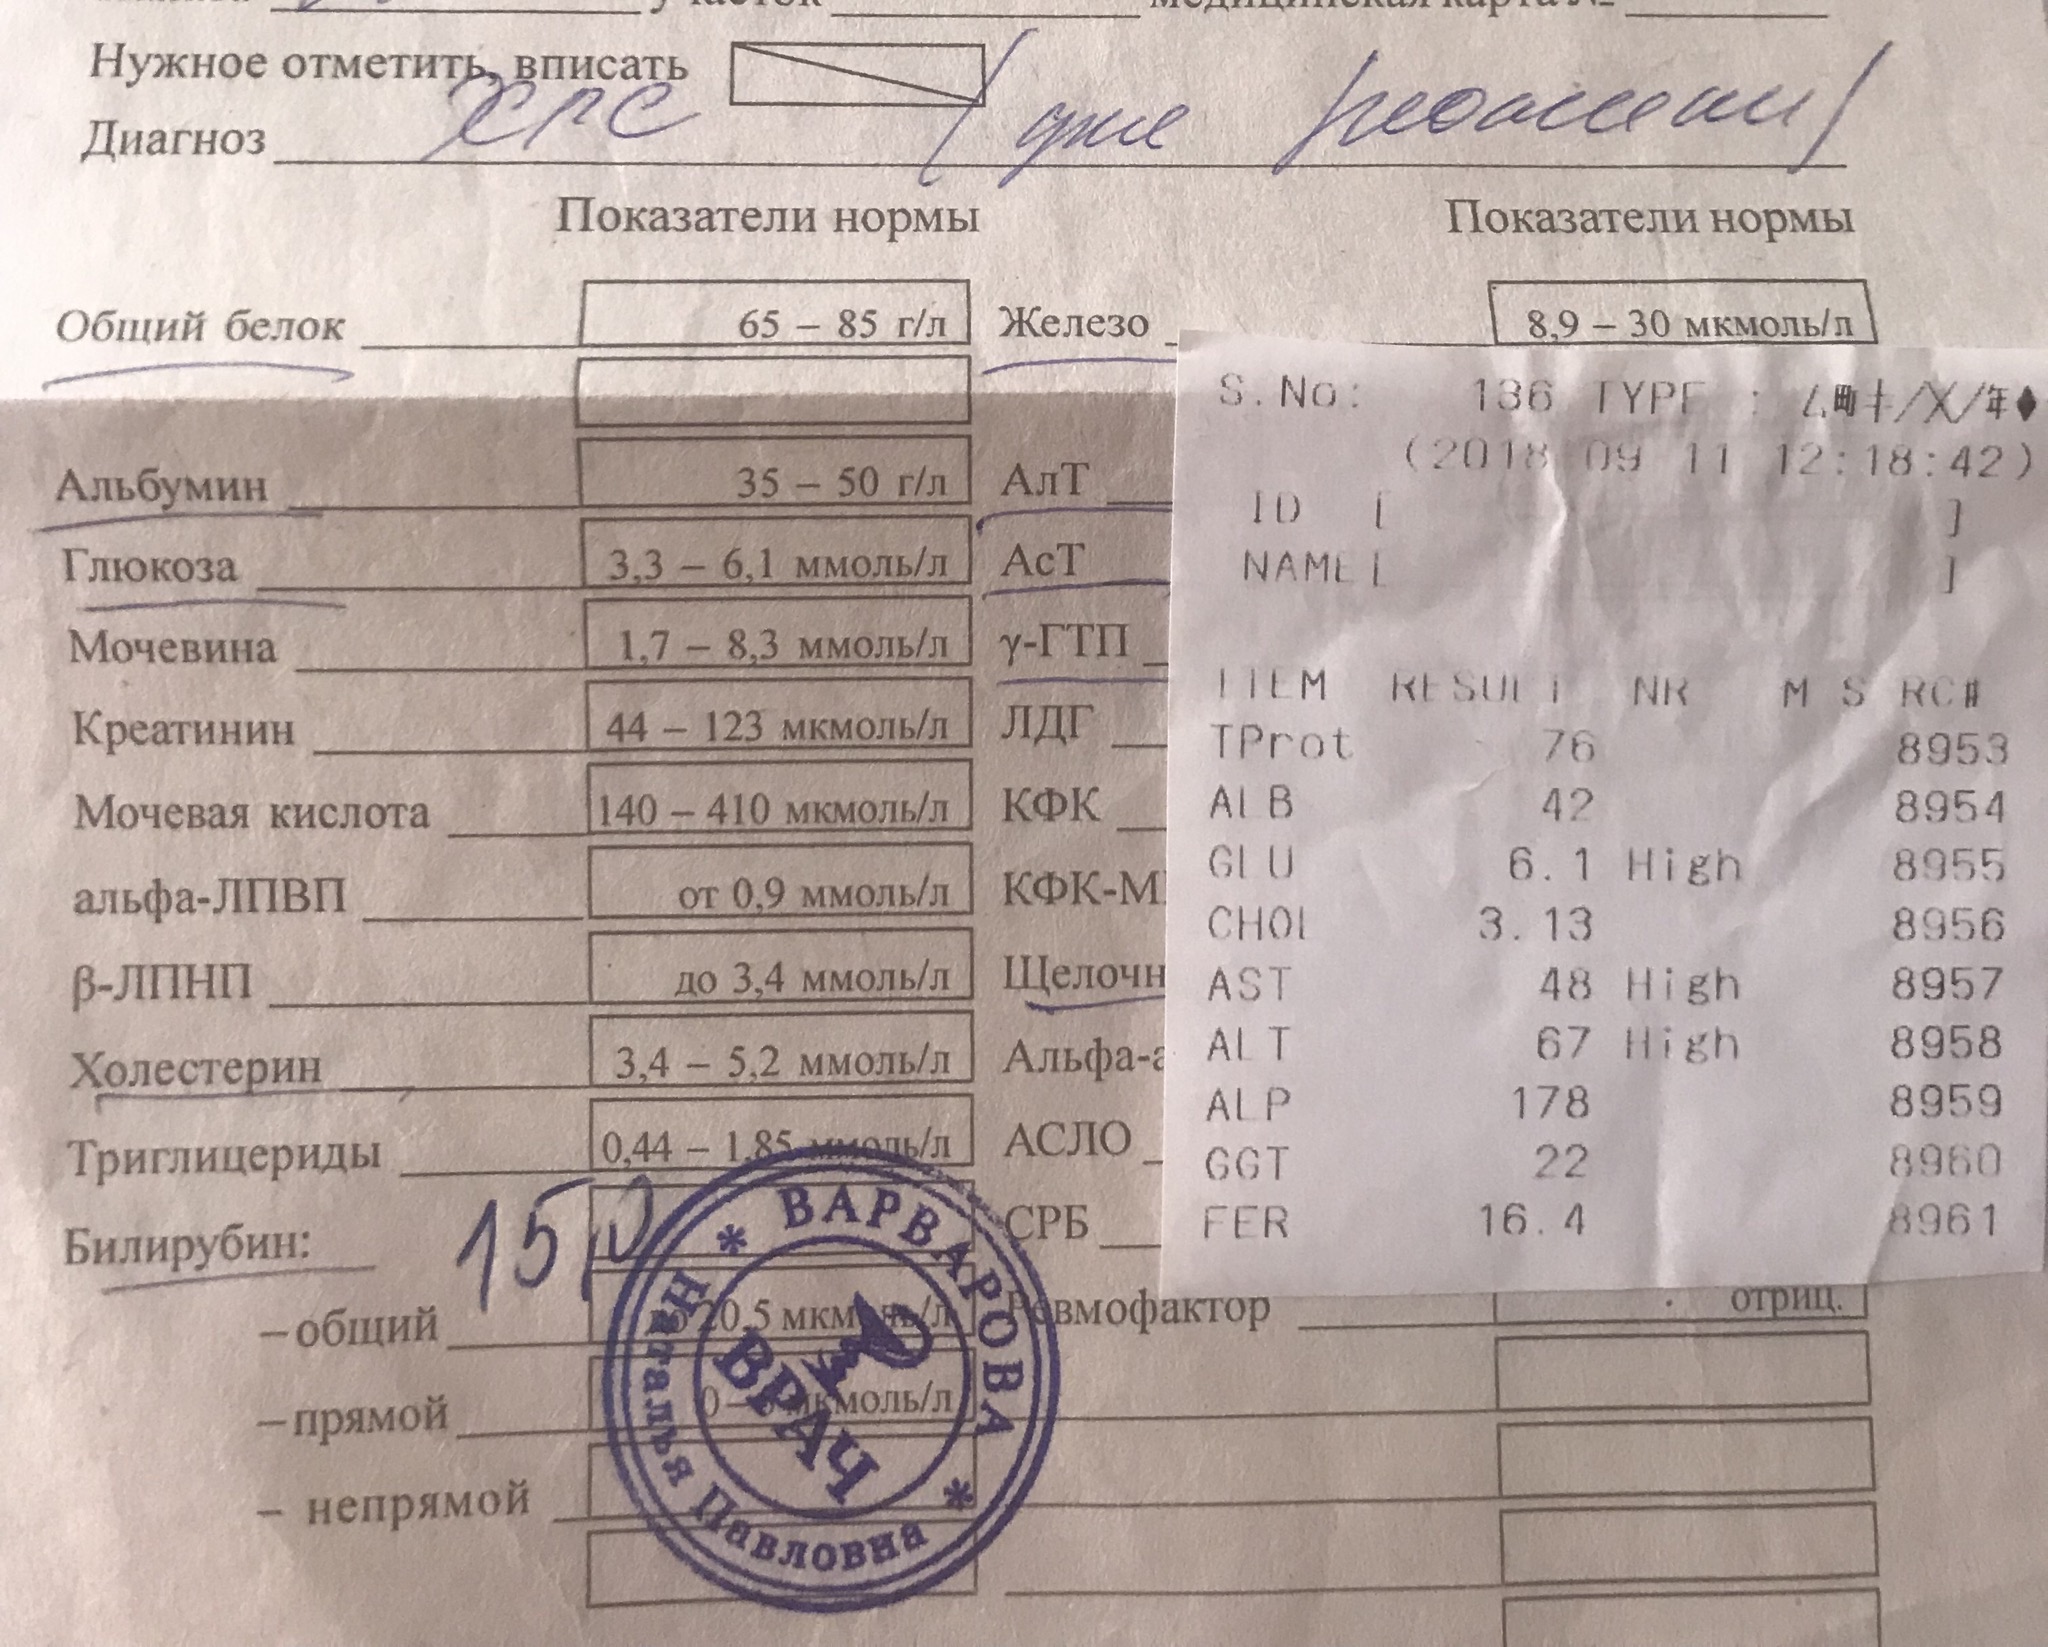 участок медицинская карта №
Нужное отметить, вписать
Диагноз ХГС (уже
Показатели нормы Показатели нормы
Общий белок 65 – 85 г/л Железо 8,9 – 30 мкмоль/л
Альбумин 35 – 50 г/л АлТ
Глюкоза 3,3 – 6,1 ммоль/л АсТ
Мочевина 1,7 – 8,3 ммоль/л γ-ГТП
Креатинин 44 – 123 мкмоль/л ЛДГ
Мочевая кислота 140 – 410 мкмоль/л КФК
альфа-ЛПВП от 0,9 ммоль/л КФК-М
β-ЛПНП до 3,4 ммоль/л Щелочн
Холестерин 3,4 – 5,2 ммоль/л Альфа-а
Триглицериды 0,44 – 1,85 ммоль/л АСЛО
Билирубин: 15,0 СРБ
– общий 20,5 мкмоль/л Ревмофактор отриц.
– прямой мкмоль/л
– непрямой
S.No: 136 TYPE :
(2018 09 11 12:18:42)
ID [ ]
NAME [ ]
ITEM RESULT NR M S RC#
TProt 76 8953
ALB 42 8954
GLU 6.1 High 8955
CHOL 3.13 8956
AST 48 High 8957
ALT 67 High 8958
ALP 178 8959
GGT 22 8960
FER 16.4 8961
* ВАРВАРОВА *
Наталья Павловна
ВРАЧ